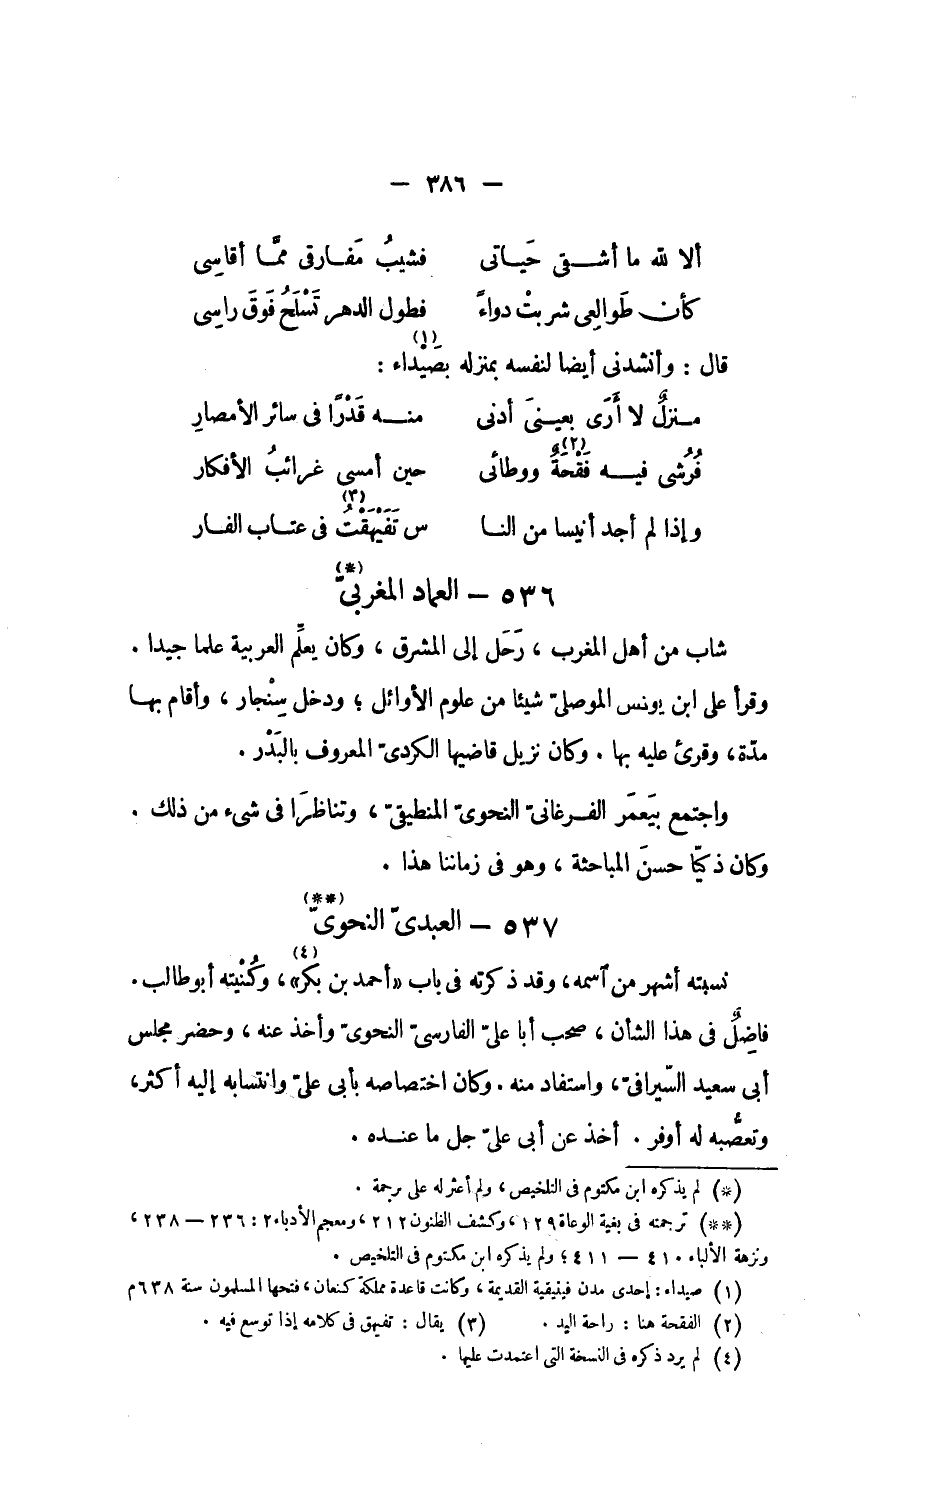 — ٣٨٦ —
ألا لله ما أشــقى حَيــاتى فشيبُ مَفــارقى ممَّا أقاسِى
كأن طَوالعِى شربتْ دواءً فطول الدهر تَسْلَحُ فَوقَ راسِى
قال : وأنشدنى أيضا لنفسه بمنزله بصَيْداء (١) :
منزلٌ لا أَرَى بعينىَ أدنى منــه قَدْرًا فى سائر الأمصارِ
فُرُشى فيــه فَقْحَةٌ (٢) ووطائى حين أمسى غرائبُ الأفكار
وإذا لم أجد أنيسا من النــا س تَفَيْهَقْتُ (٣) فى عتــاب الفــار
٥٣٦ — العماد المغربىّ (*)
شاب من أهل المغرب ، رَحَل إلى المشرق ، وكان يعلِّم العربية علما جيدا .
وقرأ على ابن يونس الموصلىّ شيئا من علوم الأوائل ؛ ودخل سِنْجار ، وأقام بهــا
مدّة، وقرئ عليه بها . وكان نزيل قاضيها الكردىّ المعروف بالبَدْر .
واجتمع بيَعمَر الفــرغانىّ النحوىّ المنطيقىّ ، وتناظرَا فى شىء من ذلك .
وكان ذكيّا حسنَ المباحثة ، وهو فى زماننا هذا .
٥٣٧ — العبدىّ النحوىّ (**)
نسبته أشهر من ٱسمه، وقد ذكرته فى باب «أحمد بن بكر (٤)» ، وكُنْيته أبو طالب.
فاضِلٌ فى هذا الشأن ، صحب أبا علىّ الفارسىّ النحوىّ وأخذ عنه ، وحضر مجلس
أبى سعيد السِّيرافىّ ، واستفاد منه . وكان اختصاصه بأبى علىّ وانتسابه إليه أكثر،
وتعصُّبه له أوفر . أخذ عن أبى علىّ جل ما عنــده .
(*) لم يذكره ابن مكتوم فى التلخيص ، ولم أعثر له على ترجمة .
(**) ترجمته فى بغية الوعاة ١٢٩ ، وكشف الظنون ٢١٢ ، ومعجم الأدباء ٢ : ٢٣٦ — ٢٣٨ ،
ونزهة الألباء ٤١٠ — ٤١١ ؛ ولم يذكره ابن مكتوم فى التلخيص .
(١) صيداء : إحدى مدن فينيقية القديمة ، وكانت قاعدة مملكة كنعان ، فتحها المسلمون سنة ٦٣٨م
(٢) الفقحة هنا : راحة اليد . (٣) يقال : تفيهق فى كلامه إذا توسع فيه .
(٤) لم يرد ذكره فى النسخة التى اعتمدت عليها .